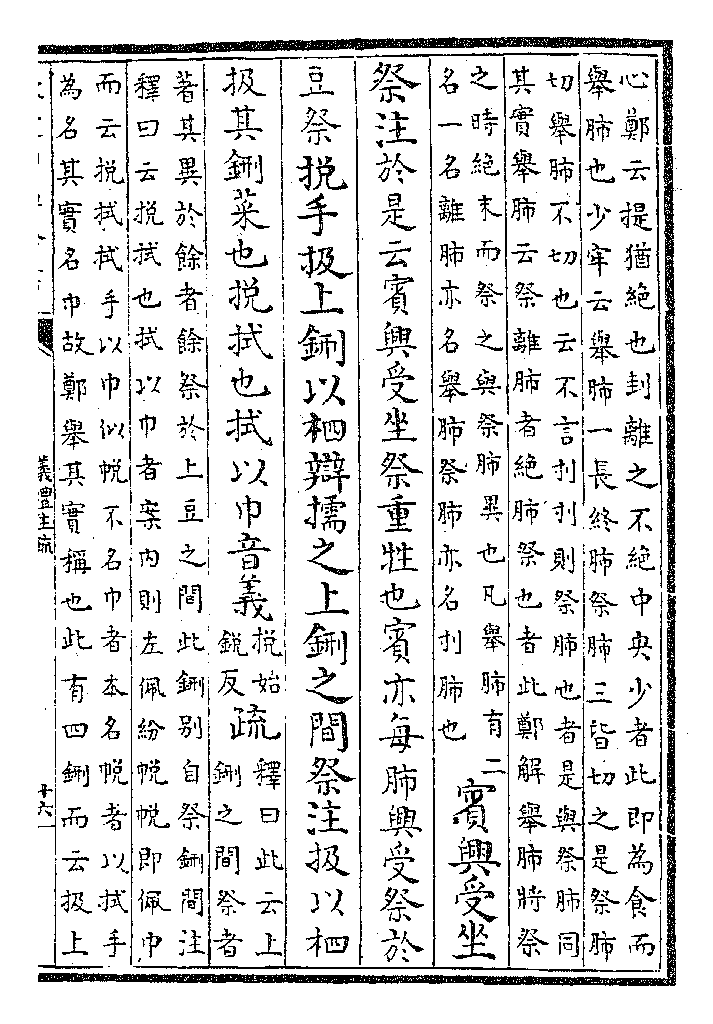 心鄭云提猶絶也刲離之不絶中央少者此即為食而
舉肺也少牢云舉肺一長終肺祭肺三皆切之是祭肺
切舉肺不切也云不言刌刌則祭肺也者是與祭肺同
其實舉肺云祭離肺者絶肺祭也者此鄭解舉肺將祭
之時絶末而祭之與祭肺異也凡舉肺有二
名一名離肺亦名舉肺祭肺亦名刌肺也
賓興受坐
祭注於是云賓興受坐祭重牲也賓亦每肺興受祭於
豆祭挩手扱上鉶以柶辯擩之上鉶之間祭注扱以柶
扱其鉶菜也挩拭也拭以巾音義
挩始
鋭反
疏
釋曰此云上
鉶之間祭者
著其異於餘者餘祭於上豆之間此鉶别自祭鉶間注
釋曰云挩拭也拭以巾者案内則左佩紛帨帨即佩巾
而云挩拭拭手以巾似帨不名巾者本名帨者以拭手
為名其實名巾故鄭舉其實稱也此有四鉶而云扱上
儀禮注疏
十六